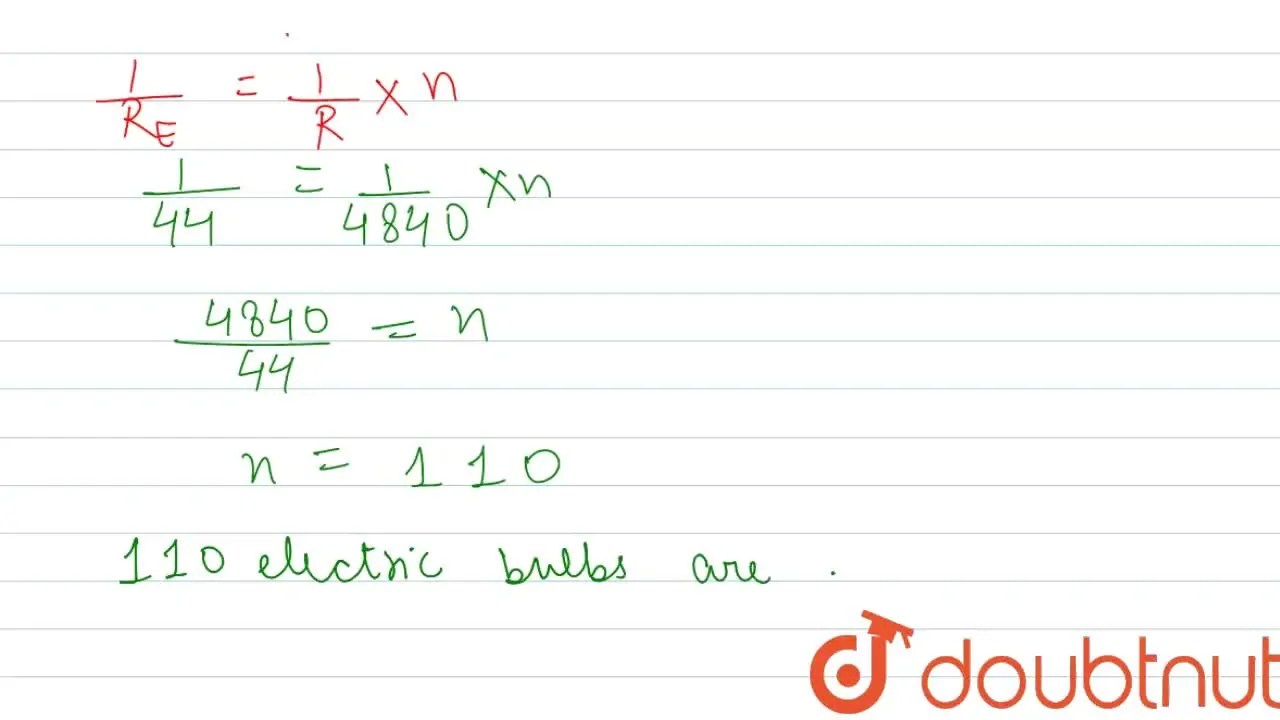 1/R_E = 1/R × n
1/44 = 1/4840 × n
4840/44 = n
n = 110
110 electric bulbs are .
doubtnut